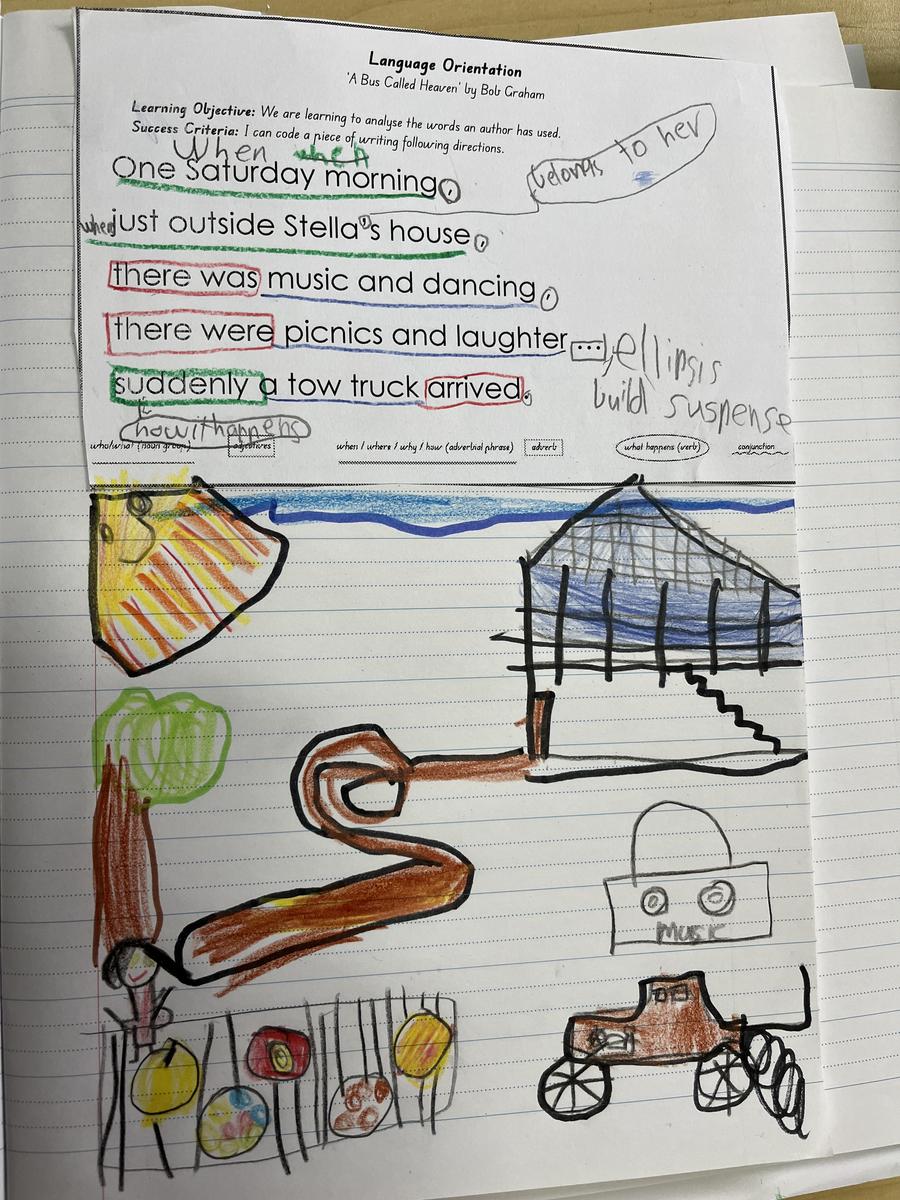 Language Orientation
'A Bus Called Heaven' by Bob Graham
Learning Objective: We are learning to analyse the words an author has used.
Success Criteria: I can code a piece of writing following directions.
When when
belongs to her
One Saturday morning,
just outside Stella's house,
there was music and dancing,
there were picnics and laughter...
ellipsis
build suspense
suddenly a tow truck arrived.
how it happens
who/what (noun group) adjectives when / where / why / how (adverbial phrase) adverb what happens (verb) conjunction
Music